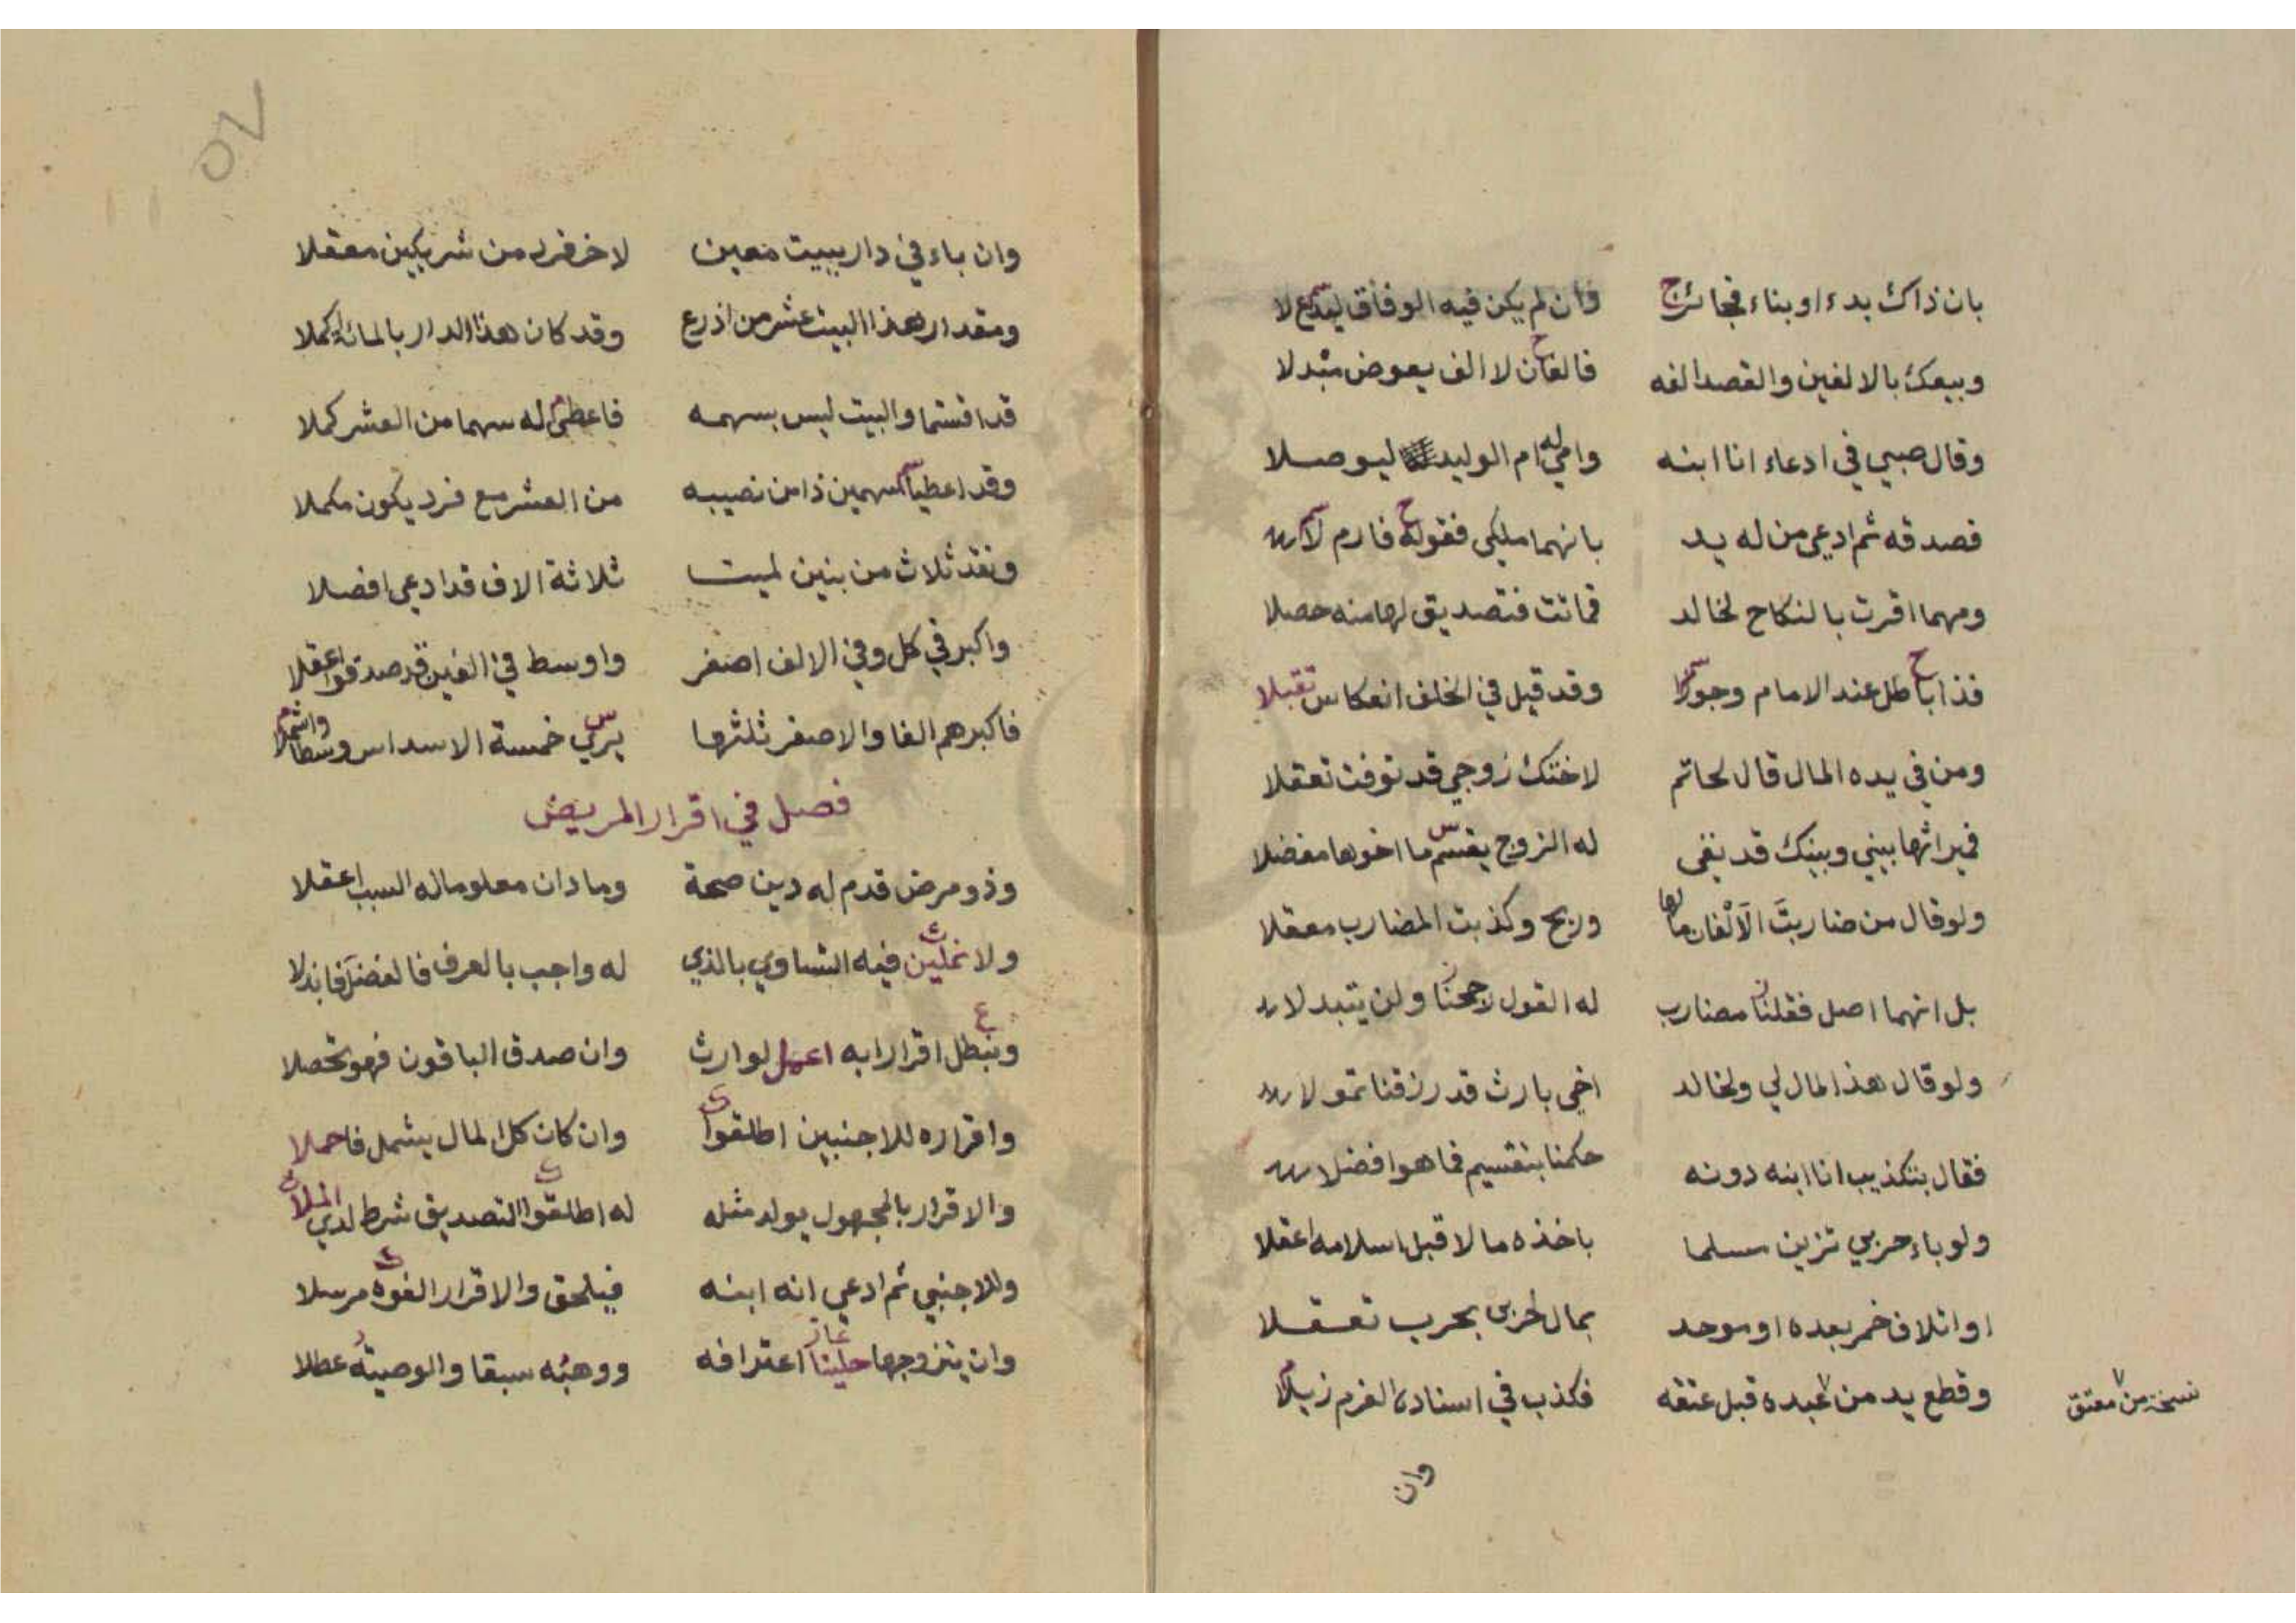 بان ذاك بدءا او بناء فجائز وان لم يكن فيه الوفاق ليدع لا
وبيعك بالالفين والقصد الفه فالفان لا الف يعوض مبدلا
وقال صبي في ادعاء انا ابنه وامي له ام الوليد ليوصلا
فصدقه ثم ادعى من له يد بانهما ملكي فقوله فارم لا
ومهما اقرت بالنكاح لخالد فماتت فتصديق لها منه حصلا
فذا باطل عند الامام وجوزا وقد قيل في الخلف انعكاس تقبلا
ومن في يده المال قال لحاتم لاختك زوجي قد توفت تعقلا
فميراثها بيني وبينك قد بقي له الزوج يقسم ما اخوها مفضلا
ولو قال من ضاربت الالفان مالها وربح وكذبت المضارب معقلا
بل انهما اصل فقلنا مضارب له القول رجحنا ولن يتبدلا
ولو قال هذا المال لي ولخالد اخي بارث قد رزقنا تمولا
فقال بتكذيب انا ابنه دونه حكمنا بتقسيم فما هو افضلا
ولو باء حربي تزين مسلما باخذه مالا قبل اسلامه اعقلا
او اتلاف خمر بعده او موحد بمال لحربي بحرب تعقلا
وقطع يد من عبده قبل عتقه فكذب في اسناده الغرم زيلا
نسخة من معتق
وان
٥٧
وان باء في دار ببيت معين لاخر فرد من شريكين معقلا
ومقدار هذا البيت عشر من اذرع وقد كان هذا الدار بالمائة كملا
قد اقتسما والبيت ليس بسهمه فاعطى له سهما من العشر كملا
وقد اعطيا سهمين ذا من نصيبه من العشر مع فرد يكون مكملا
ونقد ثلاث من بنين لميت ثلاثة الاف قد ادعى افصلا
واكبر في كل وفي الالف اصغر واوسط في الفين قد صدقوا اعقلا
فاكبرهم الفا والاصغر ثلثها يرى خمسة الاسداس وسطا واشملا
فصل في اقرار المريض
وذو مرض قدم له دين صحة وما دان معلوما له السبب اعقلا
ولا تملين فيه التساوي بالذي له واجب بالعرف فالفضل فابذلا
ونبطل اقرارا به اعمل لوارث وان صدق الباقون فهو تحصلا
واقراره للاجنبيين اطلقوا وان كان كل المال يشمل فاحملا
والاقرار بالمجهول يولد مثله له اطلقوا التصديق شرط لدى الملا
وللاجنبي ثم ادعى انه ابنه فيلحق والاقرار الغوه مرسلا
وان يتزوجها حلينا اعترافه ووهبه سبقا والوصية عطلا